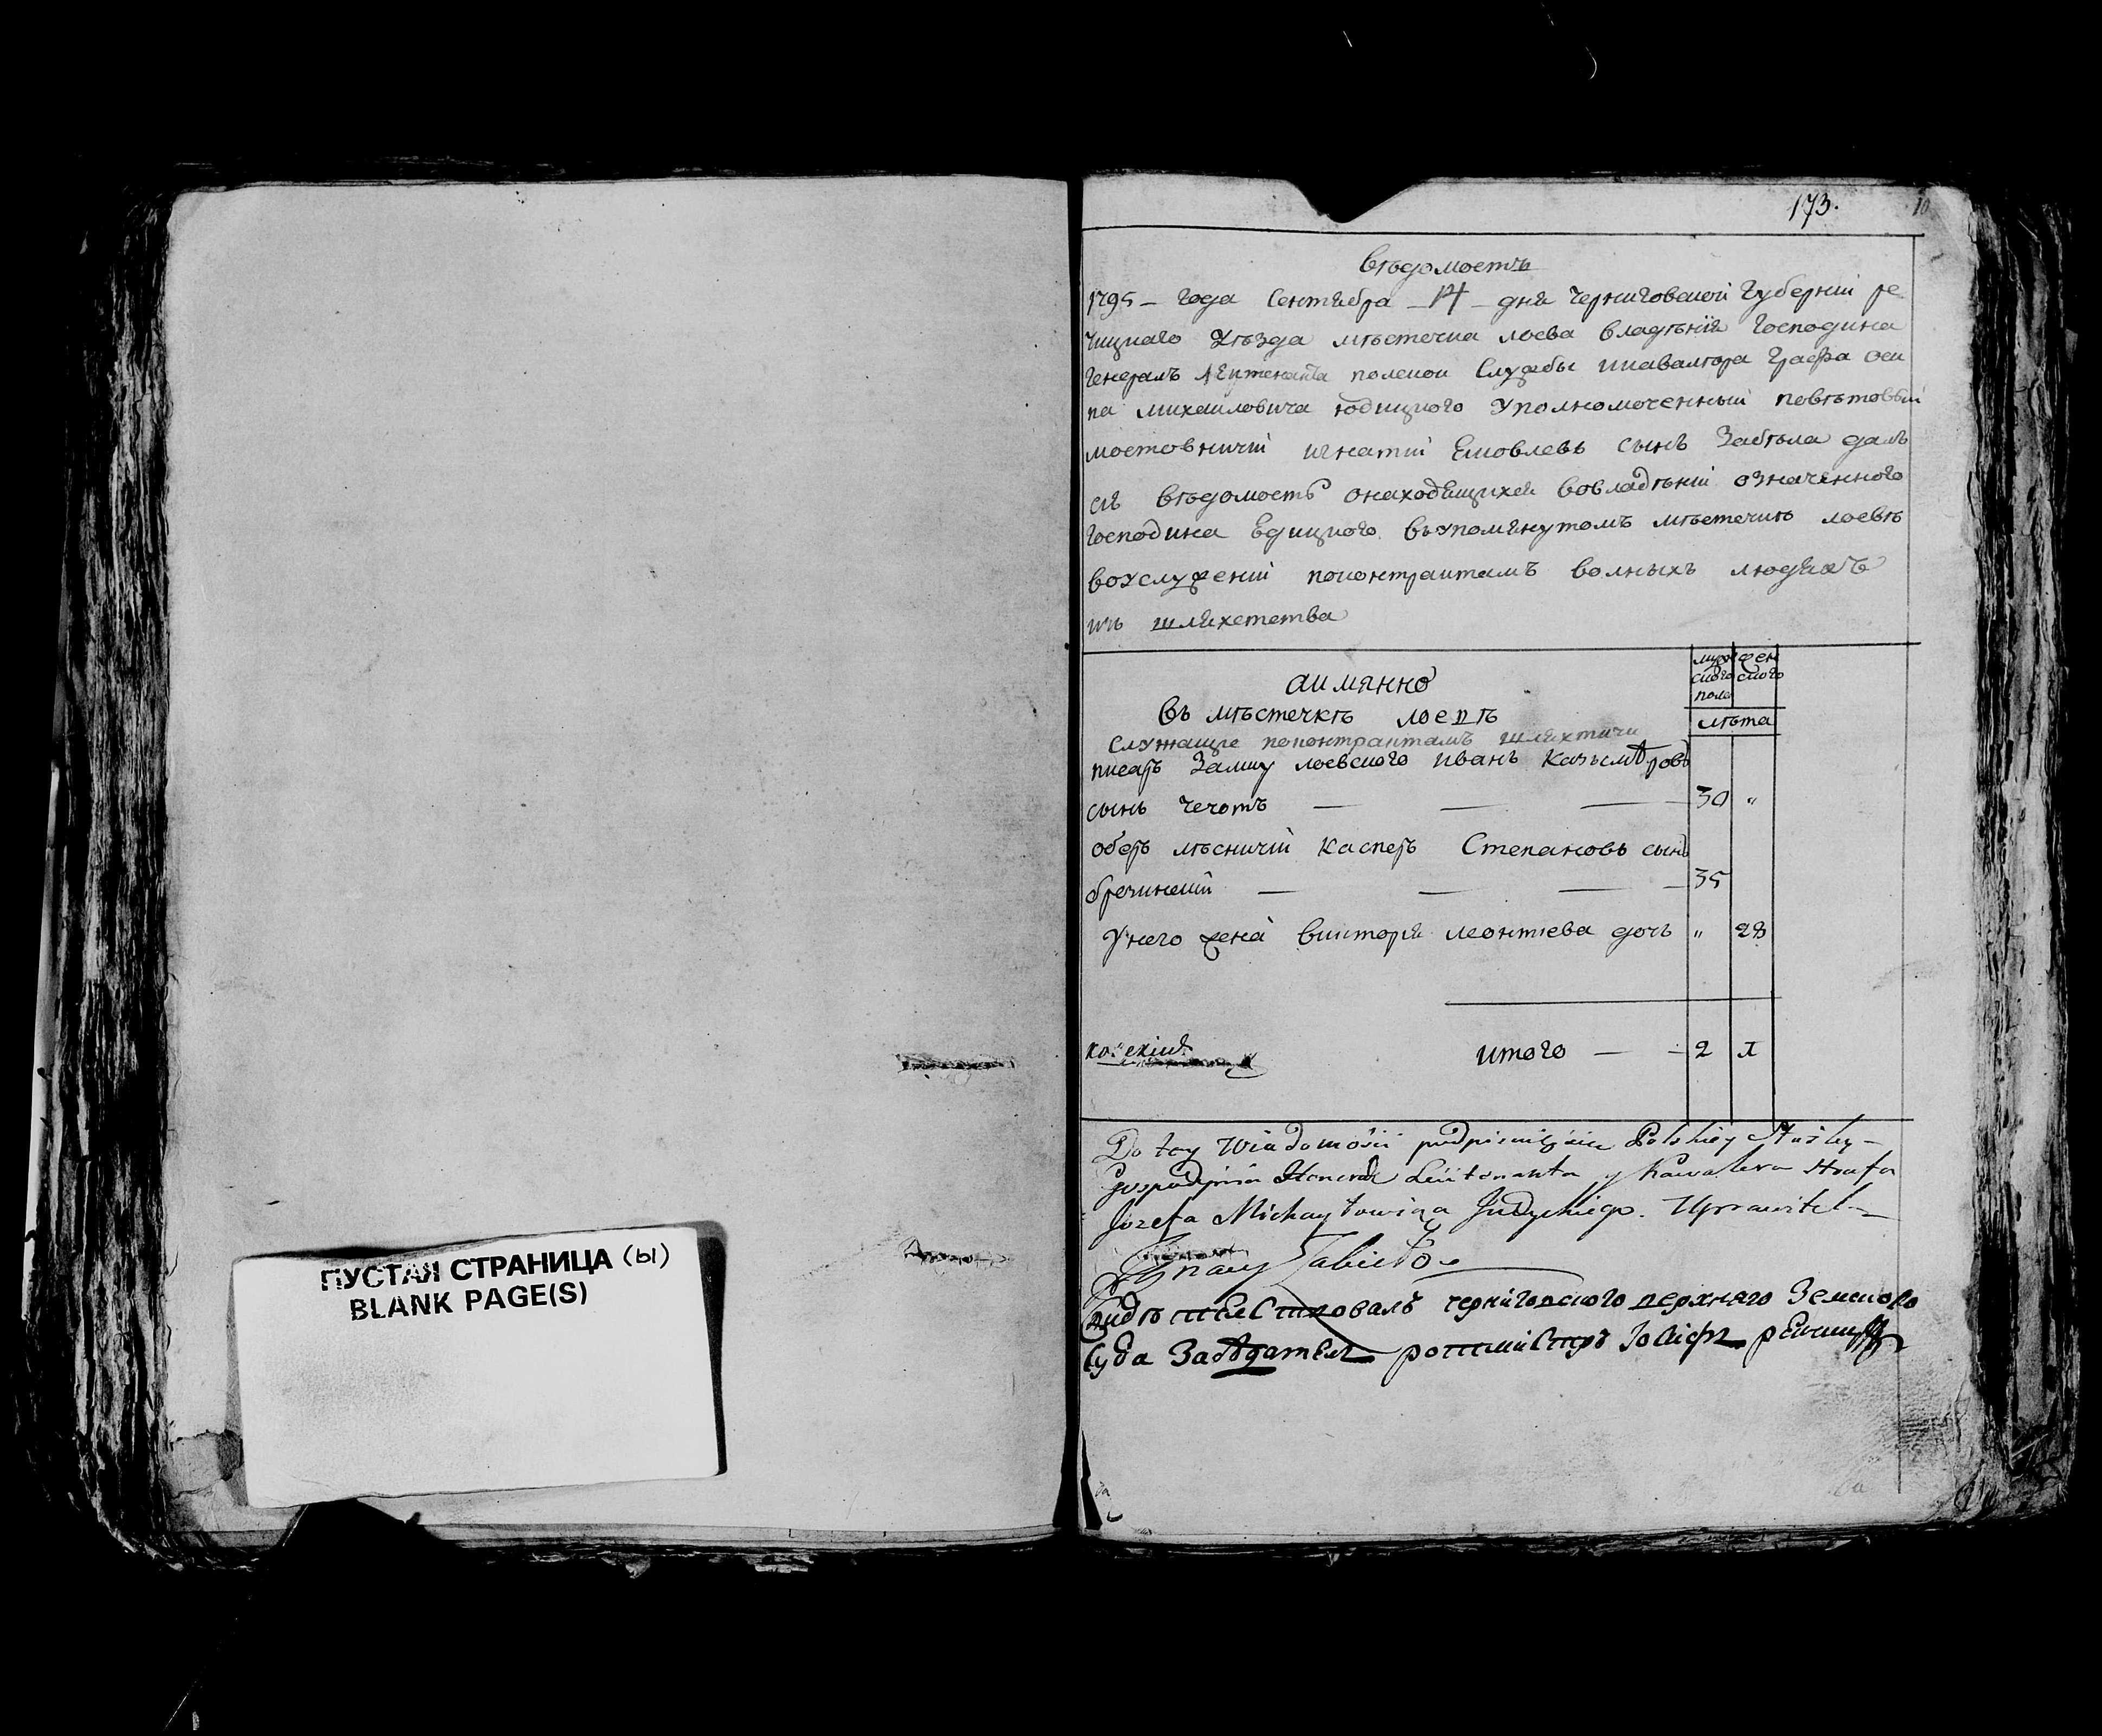 ПУСТАЯ СТРАНИЦА (ы)
BLANK PAGE(S)
173.
10
вѣдомость
1795 – года Сентября – 14 – дня Черниговской Губерніи ре
чицкаго Уѣзда мѣстечка лоева владѣнія Господина
Генералъ лейтенанта полской Службы икавалера Графа оси
па михайловича юдицкого Уполномоченный повѣтовый
мостовничій игнатій Яковлевъ сынъ Забѣла далъ
сію вѣдомость онаходящихся вовладѣніи означенного
Господина Юдицкого въупомянутомъ мѣстечкѣ лоевѣ
воуслуженіи поконтрактамъ волныхъ людяхъ
изъ шляхетства
аимянно
мужского пола
женского
лѣта
въ мѣстечкѣ лоевѣ
служащіе поконтрактамъ шляхтичи
писарь Замку лоевского иванъ Казымѣровъ
сынъ Чечотъ — — — 30 "
оберъ лѣсничій Касперъ Степановъ сынъ
— — — 35
Унего жена викторія леонтіева дочь " 28
итого — – 2 1
Do tey Wiadomości Polskiey Służby –
Gospodyna Leütenanta y Kawalera Hrafa
Jozefa Michayłowicza Judyckiego. Uprawitel –
Ignacy Zabiełło
Свидѣтельствовалъ черниговского верхняго Земского
Суда Засѣдатель ротмистръ Іосифъ